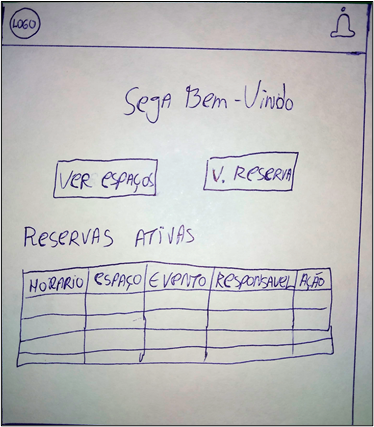 LOGO
Sega Bem-Vindo
VER ESPAÇOS
V. RESERVA
RESERVAS ATIVAS
HORARIO ESPAÇO EVENTO RESPONSAVEL AÇÃO